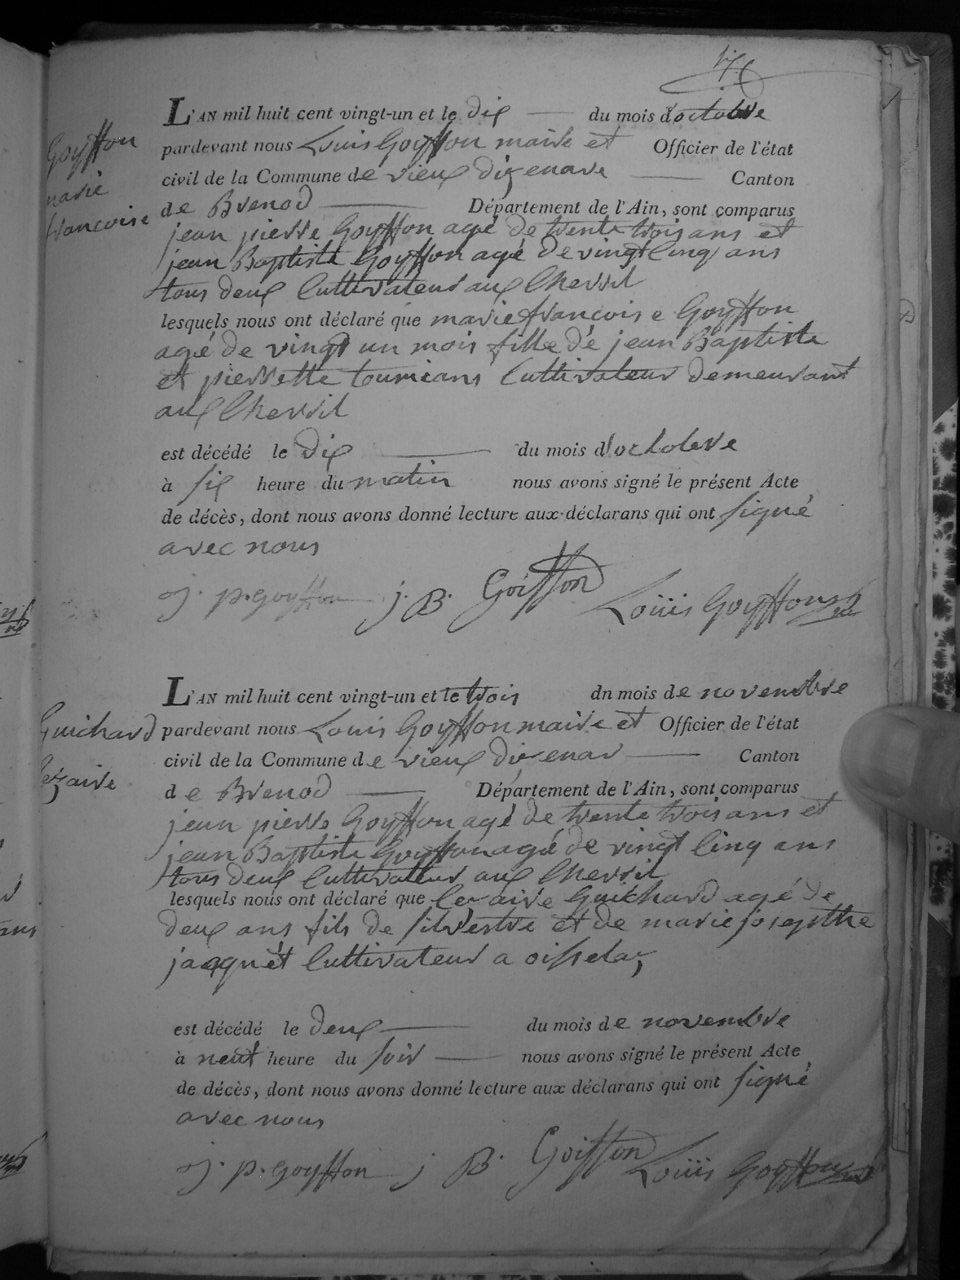 L'AN mil huit cent vingt-un et le dix du mois doctobre
Goyffon
marie
francoise
pardevant nous Louis Goyffon maire et Officier de l'état
civil de la Commune de vieux dizenave Canton
de Brenod Département de l'Ain, sont comparus
jean pierre Goyffon agé de trente trois ans et
jean Baptiste Goyffon agé de vingt cinq ans
tous deux Cultivateur aux Chevril
lesquels nous ont déclaré que marie francois e Goyffon
agé de vingt un mois fille de jean Baptiste
et pierrette Cultivateur demeurant
aux Chevril
est décédé le dix du mois d'octobre
à six heure du matin nous avons signé le présent Acte
de décès, dont nous avons donné lecture aux déclarans qui ont signé
avec nous
j. p. goyffon j. B. Goiffon Louiis Goyffon
L'AN mil huit cent vingt-un et le trois dn mois de novembre
Guichard
pardevant nous Louis Goyffon maire et Officier de l'état
civil de la Commune de vieux dizenav Canton
de Brenod Département de l'Ain, sont comparus
jean pierre Goyffon agé de trente trois ans et
jean Baptiste Goyffon agé de vingt cinq ans
tous deux Cultivateur aux Chevril
lesquels nous ont déclaré que Guichard agé de
deux ans fils de silvestre et de marie josepthe
jacquet Cultivateur a oisselaz
est décédé le deux du mois de novembre
à neuf heure du soir nous avons signé le présent Acte
de décès, dont nous avons donné lecture aux déclarans qui ont signé
avec nous
j. p. goyffon j B. Goiffon Louiis Goyffon